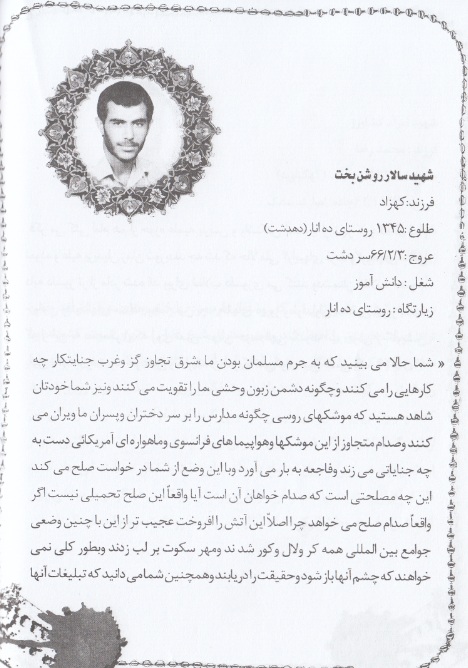 شهید سالار روشن بخت
فرزند:کهزاد
طلوع:۱۳۴۵ روستای ده انار(دهدشت)
عروج:۶۶/۲/۳سر دشت
شغل: دانش آموز
زیارتگاه: روستای ده انار
« شما حالا می بینید که به جرم مسلمان بودن ما ،شرق تجاوز گر وغرب جنایتکار چه
کارهایی را می کنند وچگونه دشمن زبون وحشی ،ها را تقویت می کنند ونیز شما خودتان
شاهد هستید که موشکهای روسی چگونه مدارس را بر سر دختران وپسران ما ویران می
کنند وصدام متجاوز از این موشکها وهواپیما های فرانسوی وماهواره ای آمریکائی دست به
چه جنایاتی می زند وفاجعه به بار می آورد وبا این وضع از شما در خواست صلح می کند
این چه مصلحتی است که صدام خواهان آن است آیا واقعاً این صلح تحمیلی نیست اگر
واقعاً صدام صلح می خواهد چرا اصلاً این آتش را افروخت عجیب تر از این با چنین وضعی
جوامع بین المللی همه کر ولال وکور شدند ومهر سکوت بر لب زدند وبطور کلی نمی
خواهند که چشم آنها باز شود وحقیقت را دریابند وهمچنین شما می دانید که تبلیغات آنها